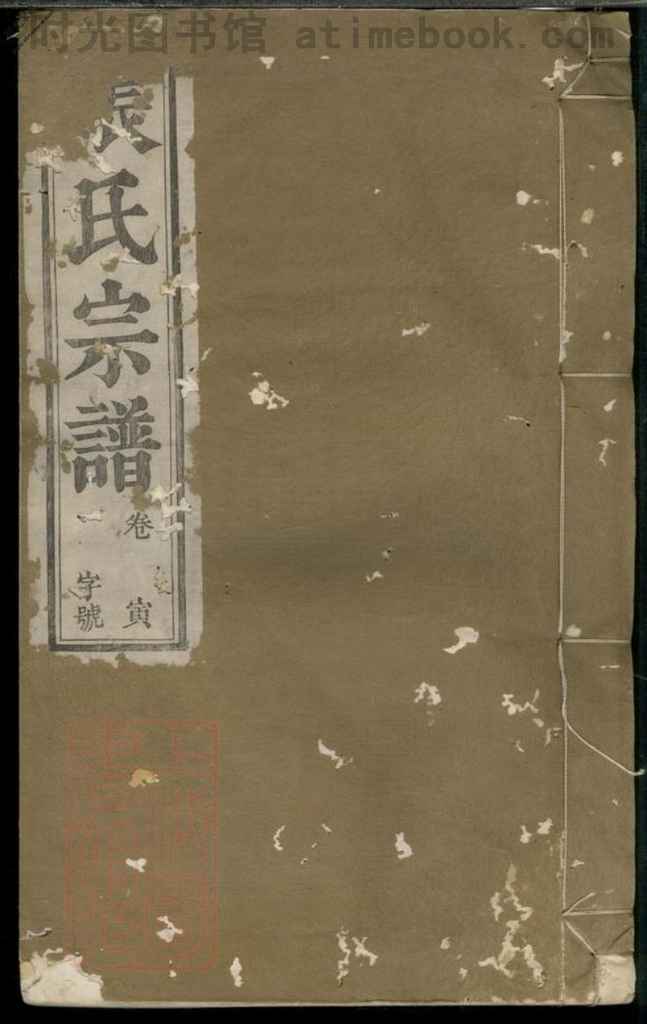 时光图书馆 atimebook.com
氏宗譜
卷 寅
一 字號